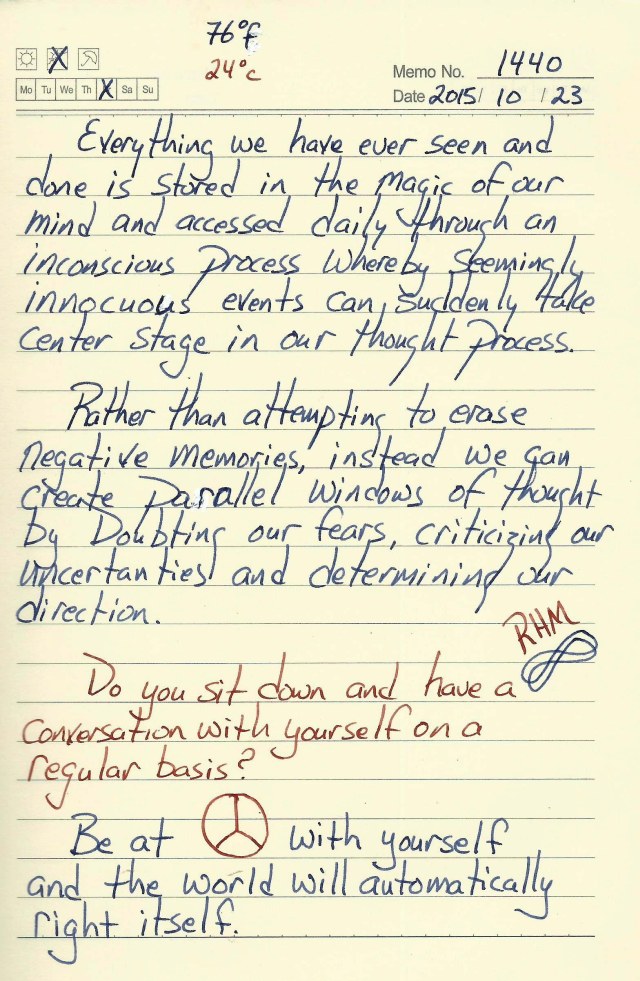 76°f
24°c
Memo No. 1440
Mo Tu We Th Sa Su
Date 2015/ 10 / 23
Everything we have ever seen and
done is stored in the magic of our
mind and accessed daily through an
inconscious process whereby seemingly
innocuous events can suddenly take
center stage in our thought process.
Rather than attempting to erase
negative memories, instead we can
create parallel windows of thought
by Doubting our fears, criticizing our
uncertanties and determining our
direction.
RHM
Do you sit down and have a
conversation with yourself on a
regular basis?
Be at with yourself
and the world will automatically
right itself.